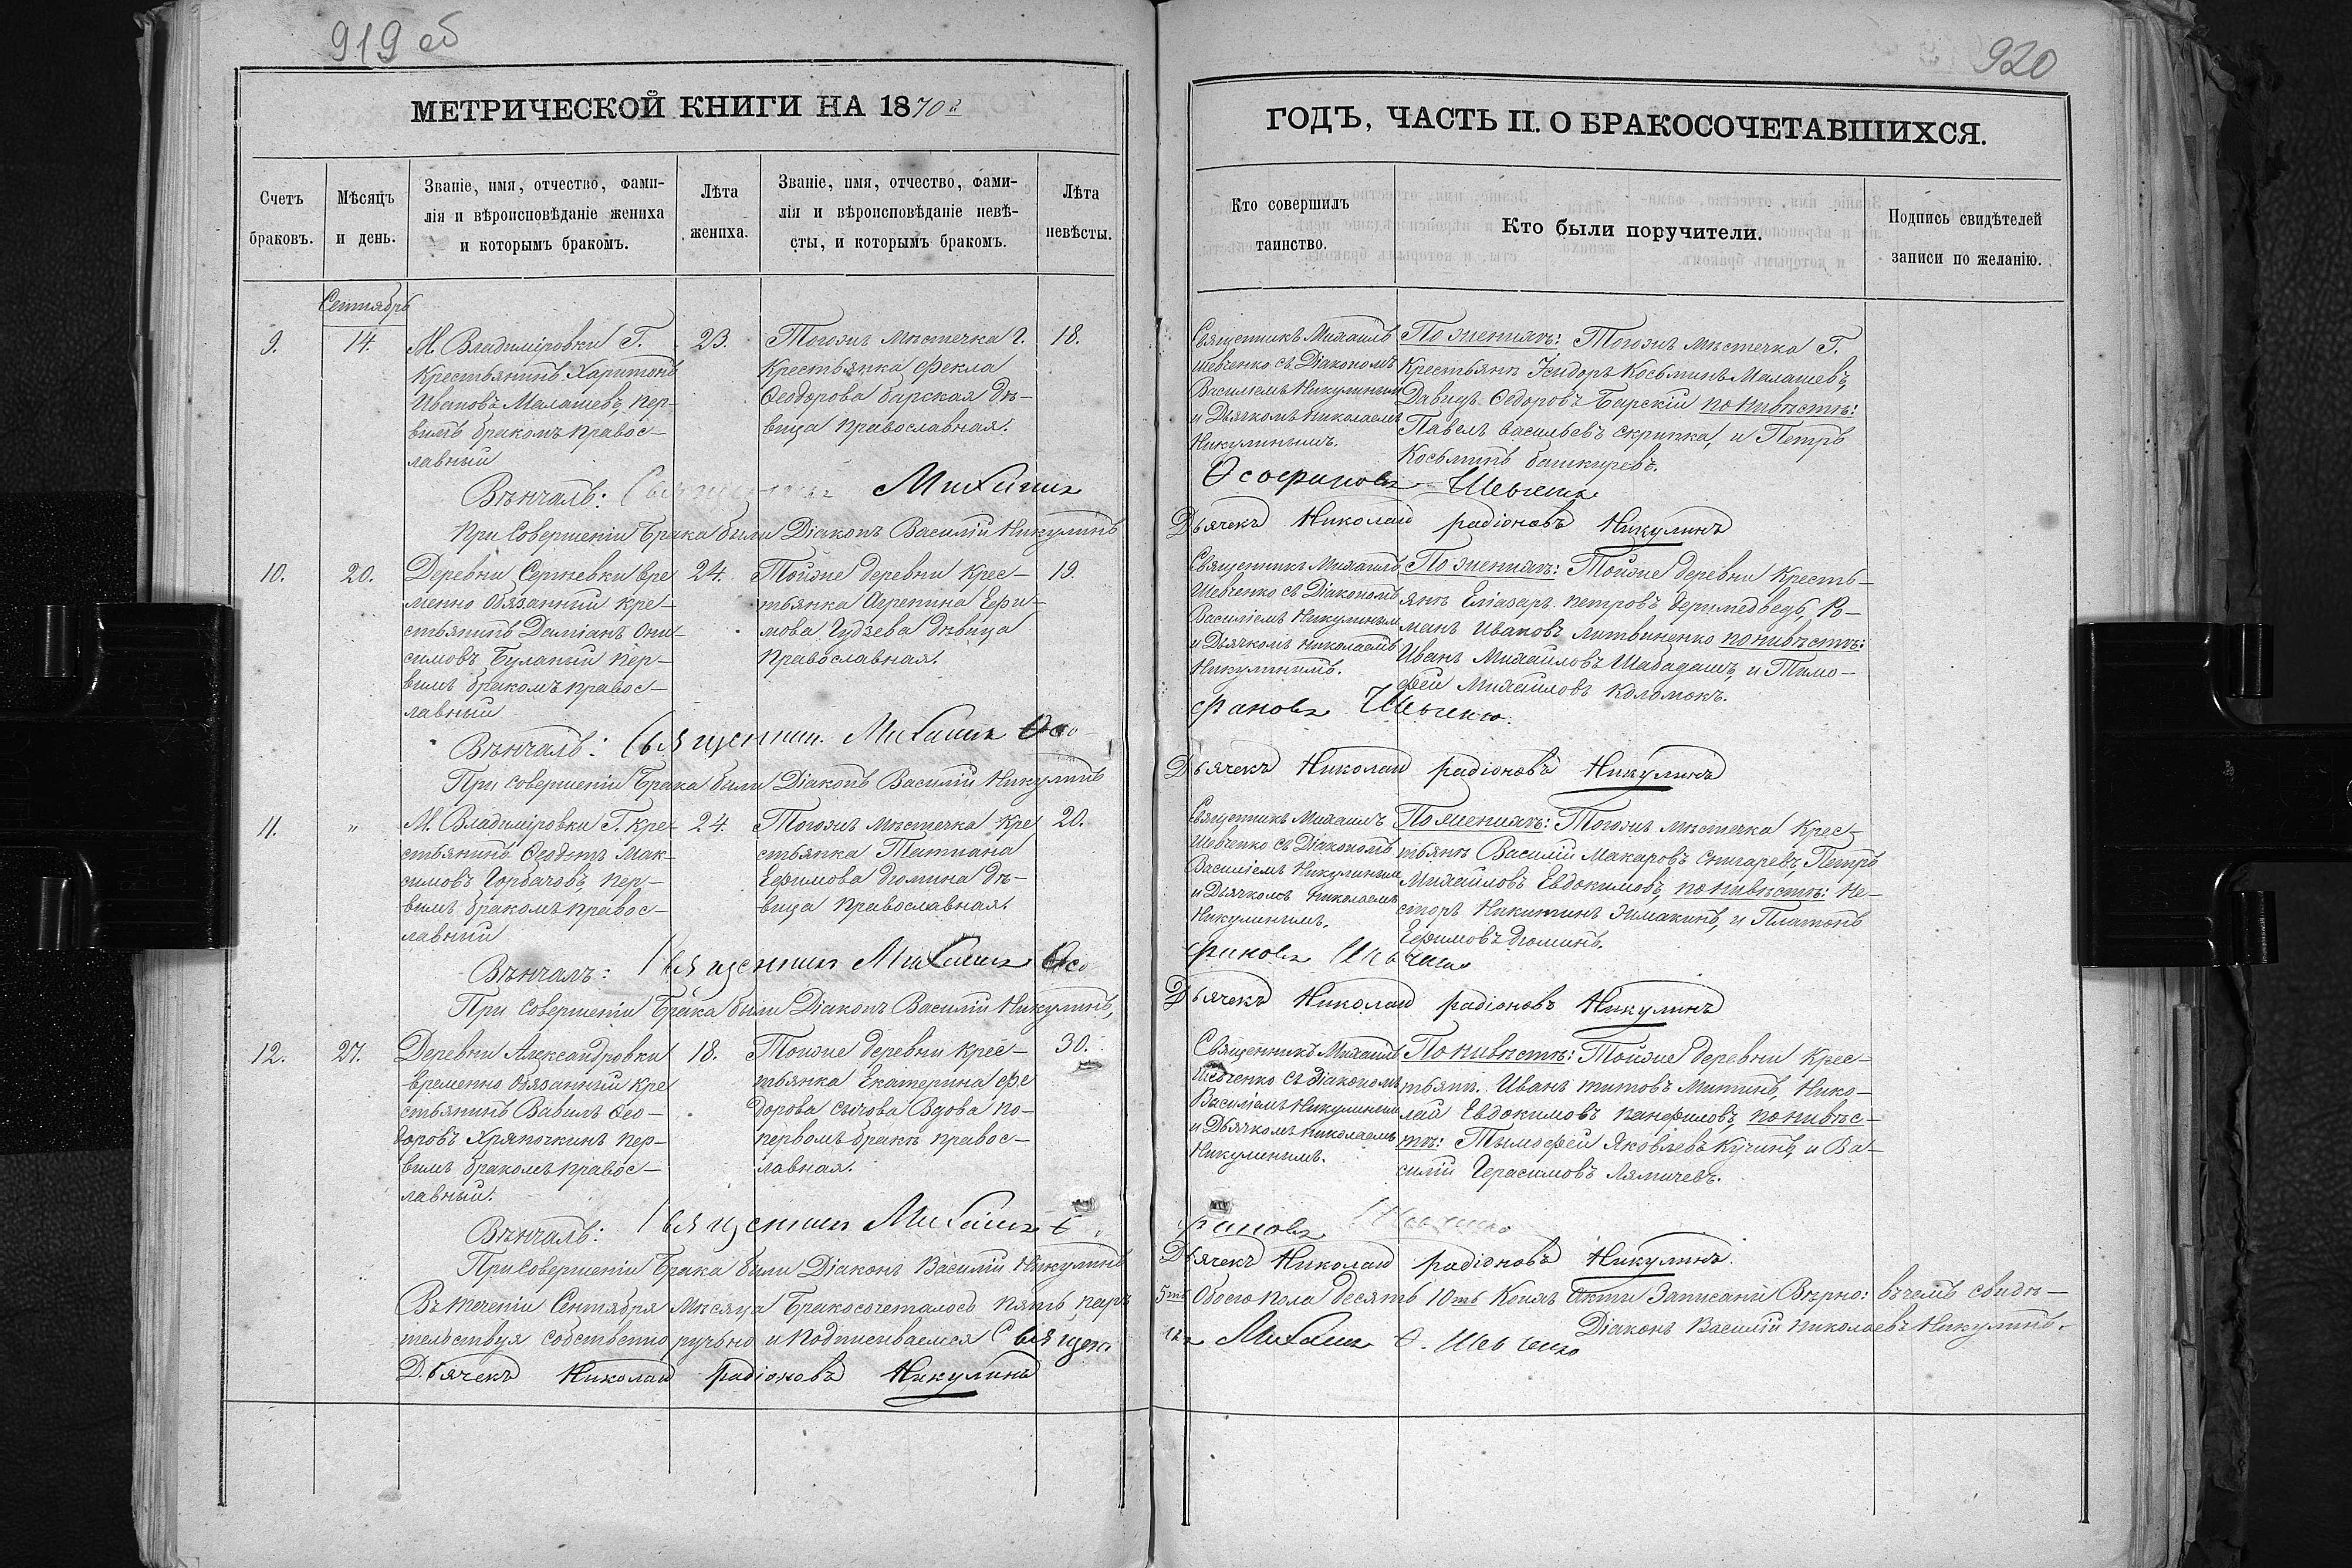 919 об
МЕТРИЧЕСКОЙ КНИГИ НА 1870й
Счетъ браковъ.
Мѣсяцъ и день.
Званіе, имя, отчество, фами-
лія и вѣроисповѣданіе жениха
и которымъ бракомъ.
Лѣта жениха.
Званіе, имя, отчество, фами-
лія и вѣроисповѣданіе невѣ-
сты, и которымъ бракомъ.
Лѣта невѣсты.
Сентябрь
9.
14.
М. Владиміровки Г.
Крестьянинъ Харитонъ
Ивановъ Малашевъ, пер-
вымъ бракомъ правос-
лавный
23.
Тогожъ мѣстечка Г.
Крестьянка Фекла
Ѳеодорова барская дѣ-
вица православная.
18.
Вѣнчалъ: Священникъ Михаилъ
При Совершеніи Брака были Діаконъ Василій Никулинъ
10.
20.
Деревни Сергѣевки вре
менно обязанный кре-
стьянинъ Даміанъ Они-
симовъ Буланый пер-
вымъ бракомъ правос-
лавный
24.
Тойже деревни крес-
тьянка Агрепина Ефи-
мова Гудзева дѣвица
Православная.
19.
Вѣнчалъ: Священник. Михаилъ Ѳео-
При совершеніи Брака были Діаконъ Василій Никулинъ
11.
"
М. Владиміровки Г. кре-
стьянинъ Ѳеодотъ Мак-
симовъ Горбачовъ, пер-
вымъ бракомъ правос-
лавный
24.
Тогожъ мѣстечка кре
стьянка Татиана
Ефимова дюмина дѣ-
вица православная.
20.
Вѣнчалъ: Священник Михаилъ Ѳео
При совершеніи Брака были Діаконъ Василій Никулинъ,
12.
27.
Деревни Александровки
временно обязанный кре
стьянинъ Вавилъ Ѳео-
доровъ Хряпочкинъ пер-
вымъ бракомъ правос-
лавный.
18.
Тойже деревни крес-
тьянка Екатерина Фе
дорова сычова Вдова по-
первомъ бракѣ правос-
лавная.
30.
Вѣнчалъ: Священник Михаилъ Ѳ.
При Совершеніи Брака были Діаконъ Василій Никулинъ
Въ теченіи Сентября Мѣсяца Бракосочеталось пять паръ
тельствуя собственноручьно и подписываемся Священ
Дьячекъ Николай радіоновъ Никулинъ
920
ГОДЪ, ЧАСТЬ II. О БРАКОСОЧЕТАВШИХСЯ.
Кто совершилъ таинство.
Кто были поручители.
Подпись свидѣтелей записи по желанію.
Священникъ Михаилъ
Шевченко съ Діакономъ
Василіемъ Никулинымъ
и Дьячкомъ Николаемъ
Никулинымъ.
По женихѣ: Тогожъ мѣстечка Г.
Крестьянъ Ісидоръ Косьминъ Малашевъ,
Давидъ Ѳедоровъ Барскій по нивѣстѣ:
Павелъ васильевъ скрипка, и Петръ
Косьминъ башкиревъ.
Ѳеофановъ Шевченк
Дьячекъ Николай радіоновъ Никулинъ
Священникъ Михаилъ
Шевченко съ Діакономъ
Василіемъ Никулинымъ
и Дьячкомъ Николаемъ
Никулинымъ.
По женихѣ: Тойже деревни Кресть-
янъ Еліазаръ петровъ деримедведь, Ро-
манъ Ивановъ литвиненко по нивѣстѣ:
Иванъ Михайловъ Шабадашъ, и Тимо-
фей Михайловъ Коломокъ.
фановъ Шевченко.
Дьячекъ Николай радіоновъ Никулинъ
Священникъ Михаилъ
Шевченко съ Діакономъ
Василіемъ Никулинымъ
и Дьячкомъ Николаемъ
Никулинымъ.
По женихѣ: Тогожъ мѣстечка Крес-
тьянъ Василій Макаровъ снигаревъ, Петръ
Михайловъ Евдокимовъ, по нивѣстѣ: Не-
сторъ Никитинъ Зимакинъ, и Платонъ
Ефимовъ дюминъ.
фановъ Шевченко
Дьячекъ Николай радіоновъ Никулинъ
Священникъ Михаилъ
Шевченко съ Діакономъ
Василіемъ Никулинымъ
и Дьячкомъ Николаемъ
Никулинымъ.
По нивѣстѣ: Тойже деревни Крес-
тьянъ. Иванъ титовъ Митинъ, Нико-
лай Евдокимовъ панфиловъ, по нивѣс-
тѣ: Тымофей Яковлевъ Кучинъ, и Ва-
силій Герасимовъ Лямичевъ.
фановъ Шевченко
Дьячекъ Николай радіоновъ Никулинъ.
5ть Обоего пола десять 10ть Коимъ Акты Записаны Вѣрно: въчемъ свидѣ-
Діаконъ Василій Николаевъ Никулинъ.
Михаилъ Ѳ. Шевченко